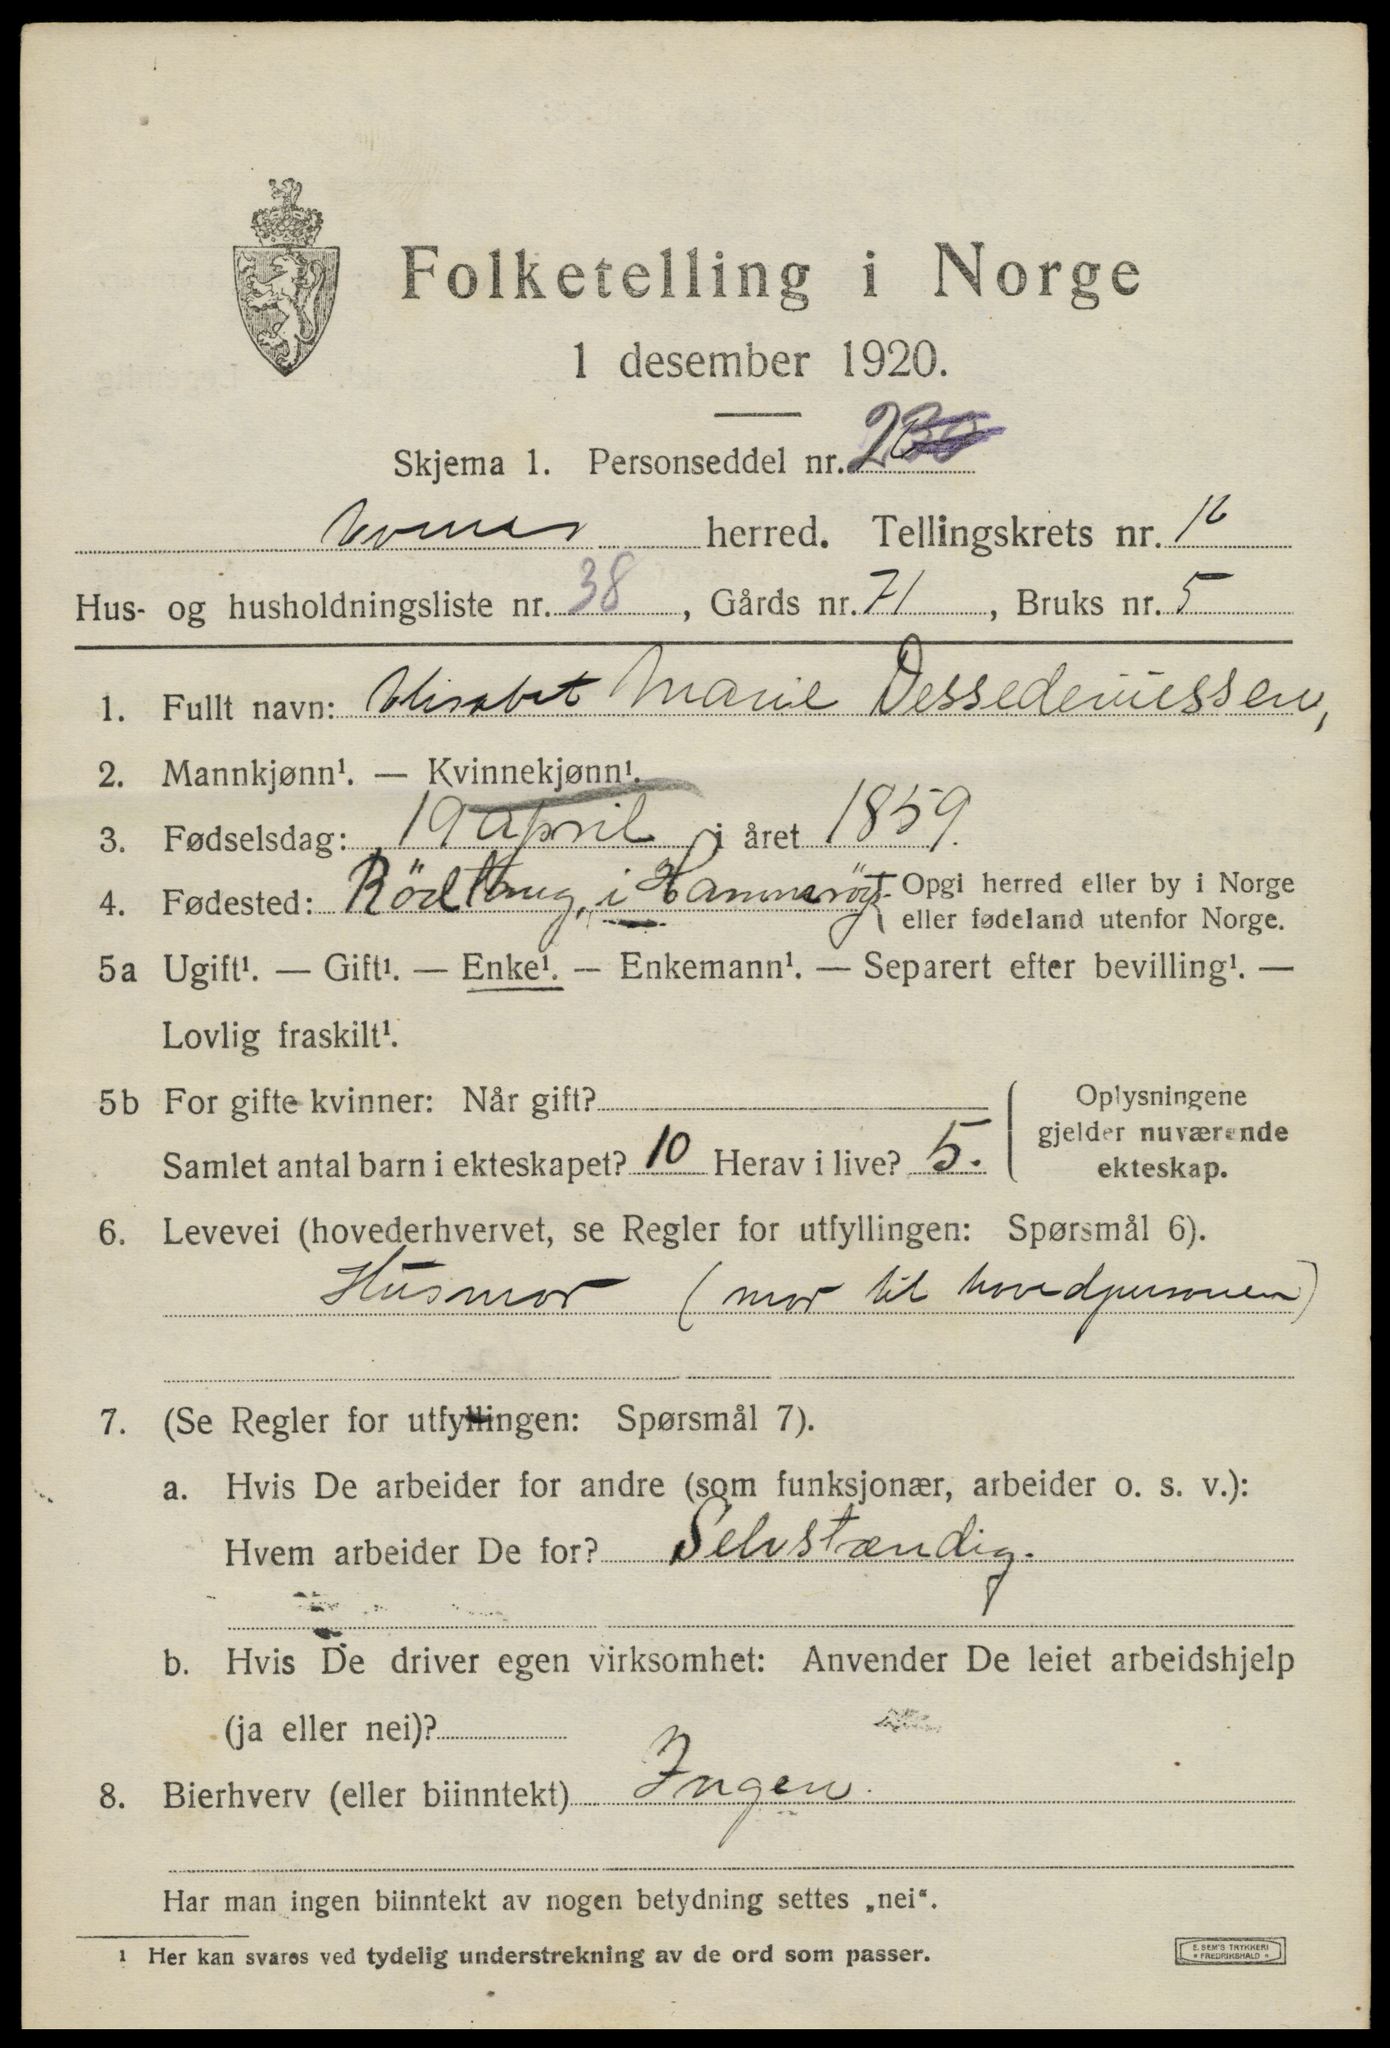 Folketelling i Norge
1 desember 1920.
Skjema 1. Personseddel nr. 2
herred. Tellingskrets nr. 16
Hus- og husholdningsliste nr. 38, Gårds nr. 71, Bruks nr. 5
1. Fullt navn: Elisabet Marie
2. Mannkjønn¹. — Kvinnekjønn¹.
3. Fødselsdag: 19 april i året 1859.
4. Fødested: i Opgi herred eller by i Norge
eller fødeland utenfor Norge.
5a Ugift¹. — Gift¹. — Enke¹. — Enkemann¹. — Separert efter bevilling¹. —
Lovlig fraskilt¹.
5b For gifte kvinner: Når gift?
Samlet antal barn i ekteskapet? 10 Herav i live? 5.
Oplysningene
gjelder nuværende
ekteskap.
6. Levevei (hovederhvervet, se Regler for utfyllingen: Spørsmål 6).
Husmor (mor til hovedpersonen)
7. (Se Regler for utfyllingen: Spørsmål 7).
a. Hvis De arbeider for andre (som funksjonær, arbeider o. s. v.):
Hvem arbeider De for? Selvstændig.
b. Hvis De driver egen virksomhet: Anvender De leiet arbeidshjelp
(ja eller nei)?
8. Bierhverv (eller biinntekt) Ingen.
Har man ingen biinntekt av nogen betydning settes „nei“.
¹ Her kan svares ved tydelig understrekning av de ord som passer.
E. SEM'S TRYKKERI
FREDRIKSHALD